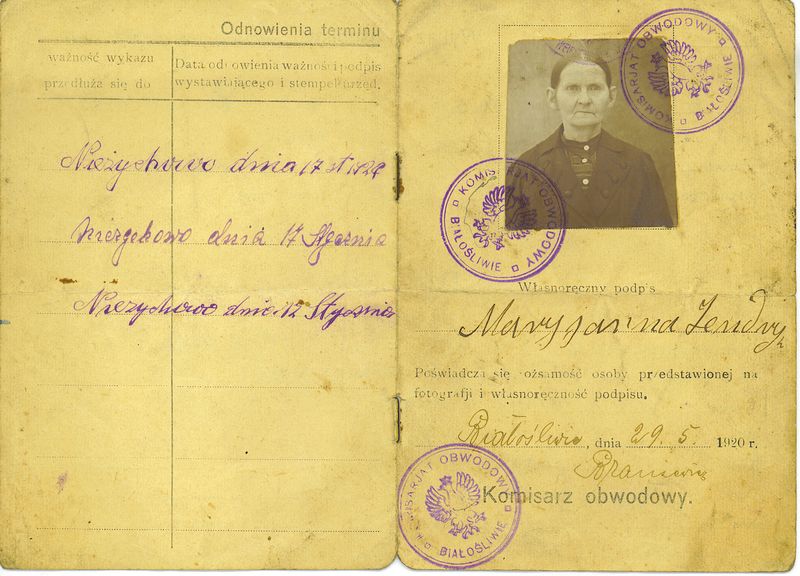 Odnowienia terminu
ważność wykazu
przedłuża się do
Data odnowienia ważności podpis
wystawiającego i stempel urzęd.
Nieżychowo dnia 17 st 1924
Niezychowo dnia 17 Stycznia
Niezychowo dnia 12 Stycznia
KOMISARJAT OBWODOWY
BIAŁOŚLIWIE
KOMISARJAT OBWODOWY
BIAŁOŚLIWIE
Własnoręczny podpis
Maryjanna Jendry
Poświadcza się tożsamość osoby przedstawionej na
fotografji i własnoręczność podpisu.
Białośliwie, dnia 29. 5. 1920 r.
Komisarz obwodowy.
KOMISARJAT OBWODOWY
BIAŁOŚLIWIE